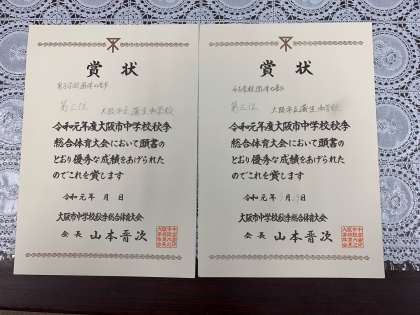 賞状
男子学校団体の部
第三位 大阪市立蒲生中学校
令和元年度大阪市中学校秋季
総合体育大会において頭書の
とおり優秀な成績をあげられた
のでこれを賞します
令和元年 月 日
大阪市中学校秋季総合体育大会
会長 山本晋次
賞状
第三位 大阪市立蒲生中学校
令和元年度大阪市中学校秋季
総合体育大会において頭書の
とおり優秀な成績をあげられた
のでこれを賞します
令和元年 月 日
大阪市中学校秋季総合体育大会
会長 山本晋次